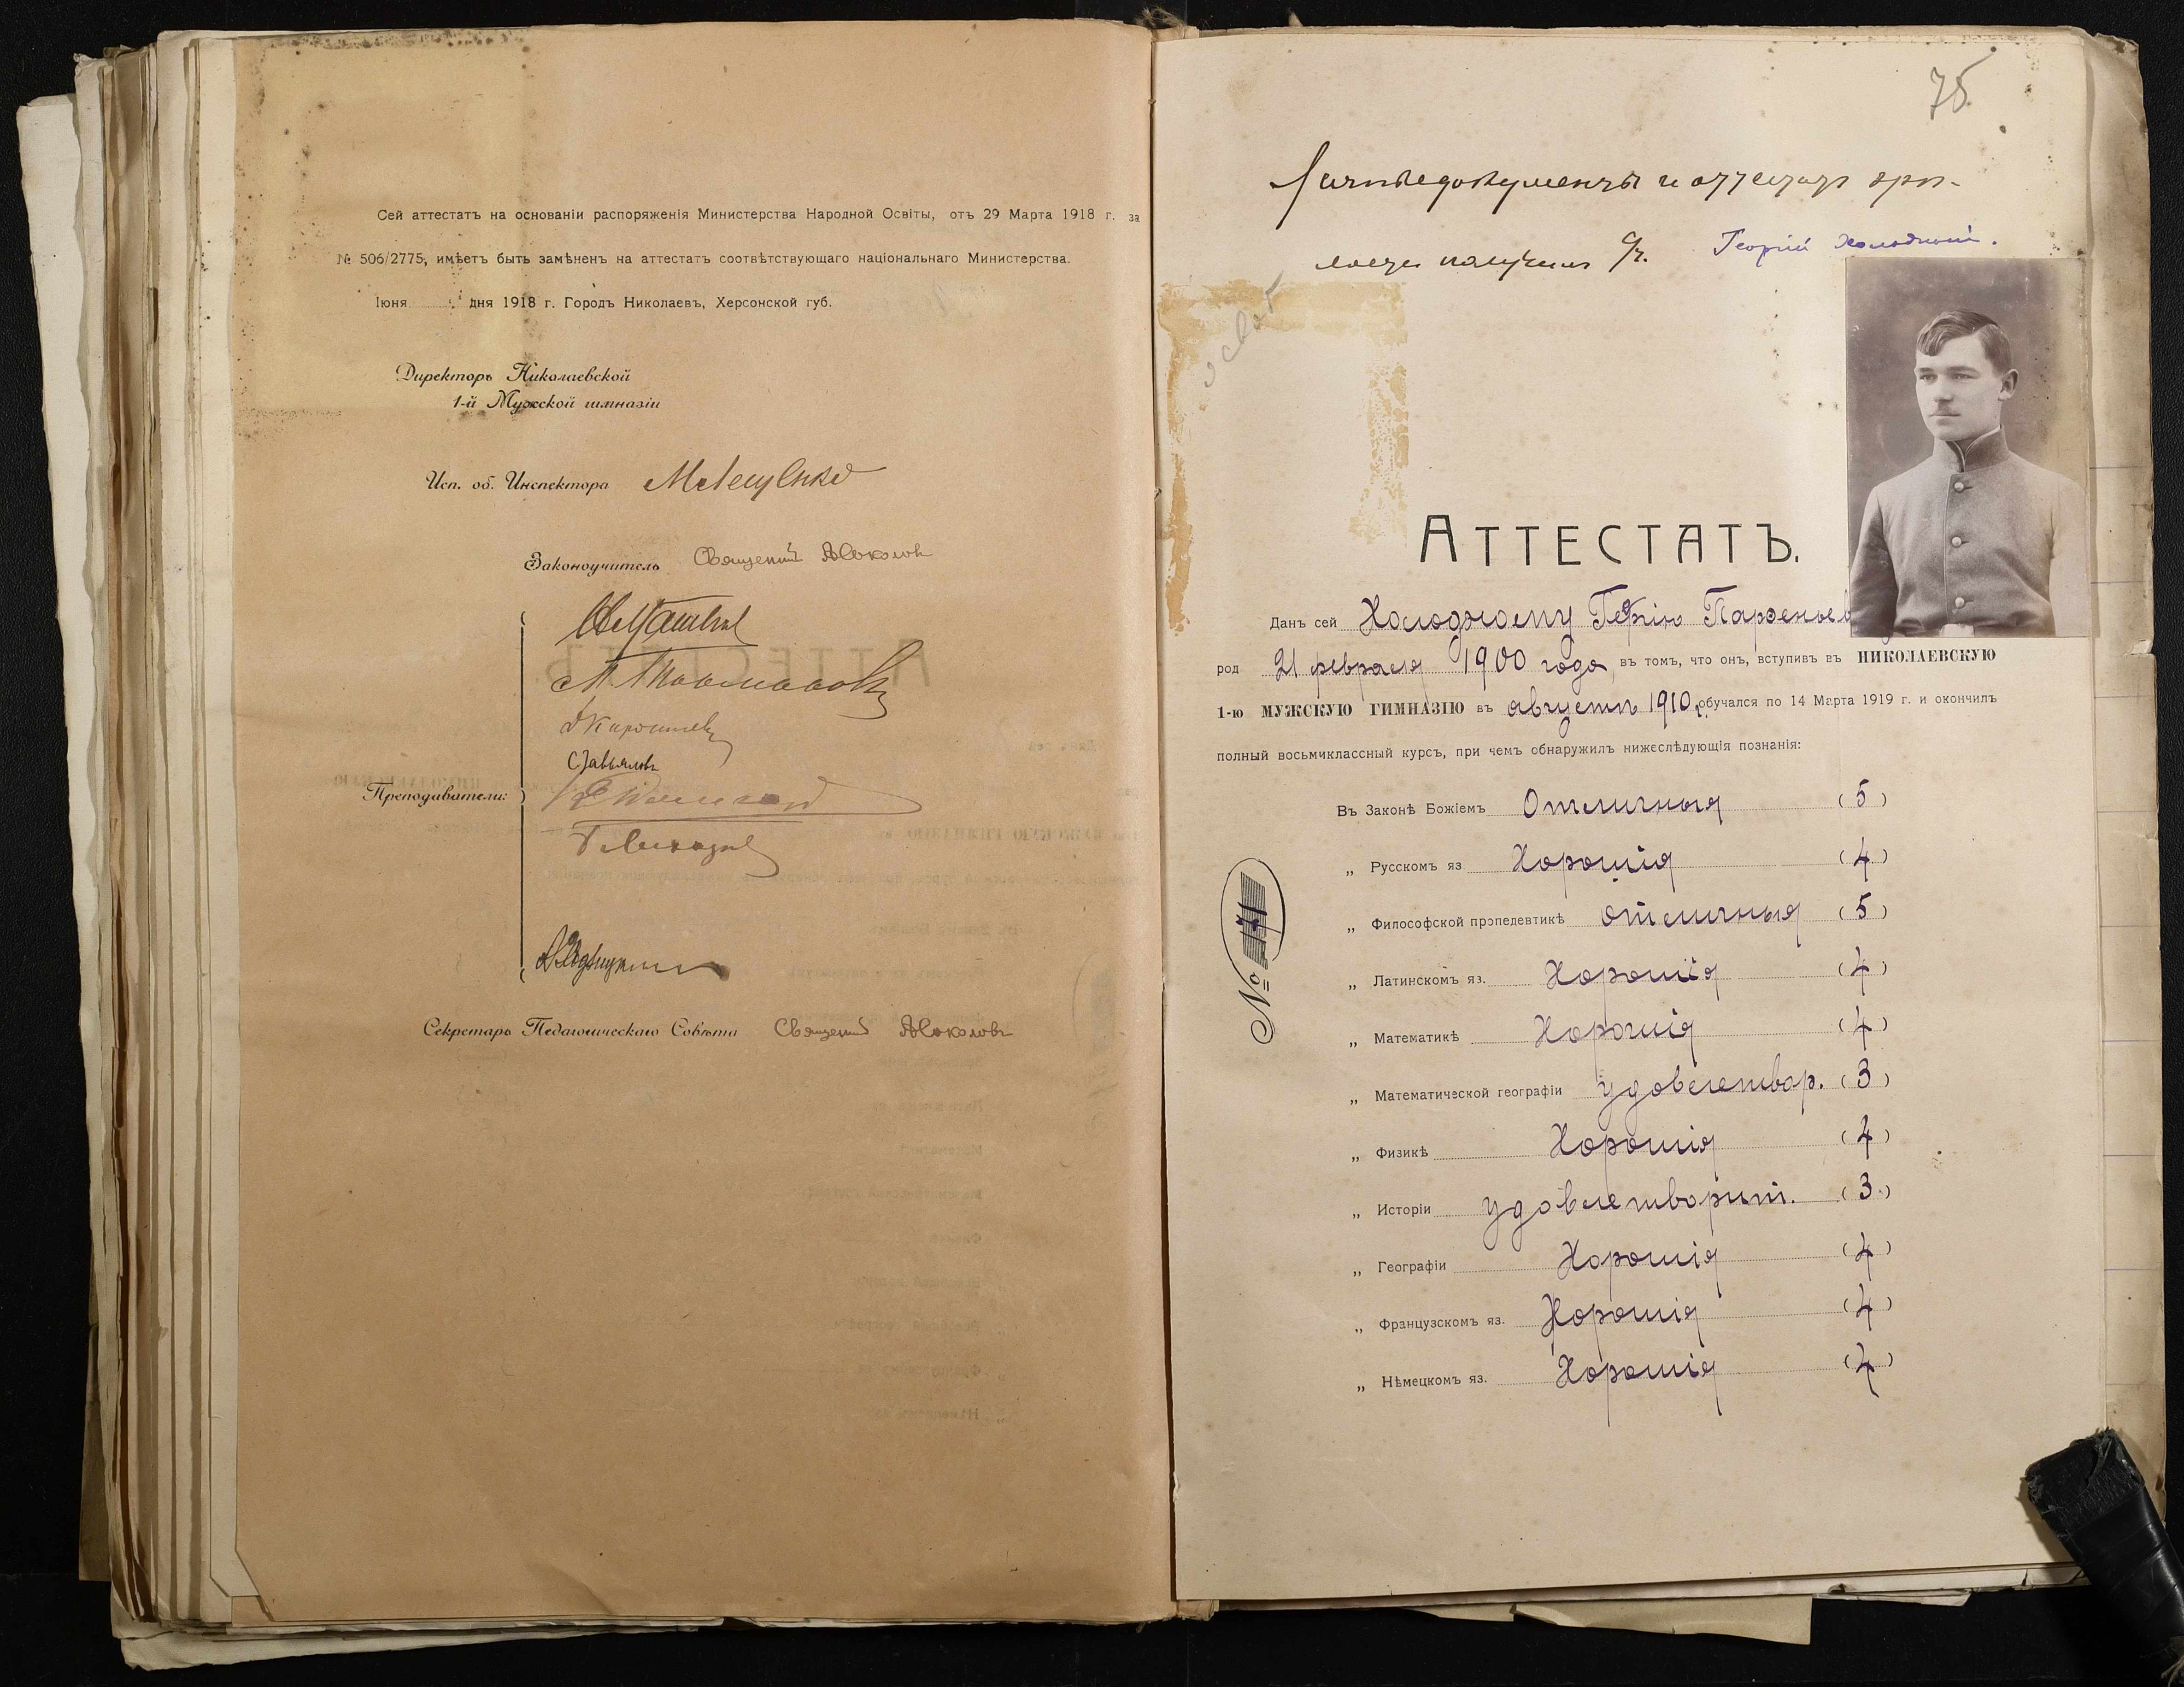 Сей аттестатъ на основаніи распоряженія Министерства Народной Освіты, отъ 29 Марта 1918 г. за
№ 506/2775, имѣетъ быть замѣненъ на аттестатъ соотвѣтствующаго національнаго Министерства.
Іюня дня 1918 г. Городъ Николаевъ, Херсонской губ.
Директоръ Николаевской
1-й Мужской гимназіи
Исп. об. Инспектора
Законоучитель Священникъ А Соколовъ
Преподаватели:
С Завьяловъ
Секретарь Педагогическаго Совѣта Священникъ А Соколовъ
75
документы и аттестат
получил Георгій Холодный.
АТТЕСТАТЪ.
Данъ сей Холодному Георгію Парѳеньев
род 21 февраля 1900 года, въ томъ, что онъ, вступивъ въ НИКОЛАЕВСКУЮ
1-ю МУЖСКУЮ ГИМНАЗІЮ въ августѣ 1910 г. обучался по 14 Марта 1919 г. и окончилъ
полный восьмиклассный курсъ, при чемъ обнаружилъ нижеслѣдующія познанія:
Въ Законѣ Божіемъ Отличныя (5)
„ Русскомъ яз Хорошія (4)
„ Философской пропедевтикѣ отличныя (5)
„ Латинскомъ яз. Хорошія (4)
„ Математикѣ Хорошія (4)
„ Математической географіи удовлетвор. (3)
„ Физикѣ Хорошія (4)
„ Исторіи удовлетворит. (3)
„ Географіи Хорошія (4)
„ Французскомъ яз. Хорошія (4)
„ Нѣмецкомъ яз. Хорошія (4)
№ 171